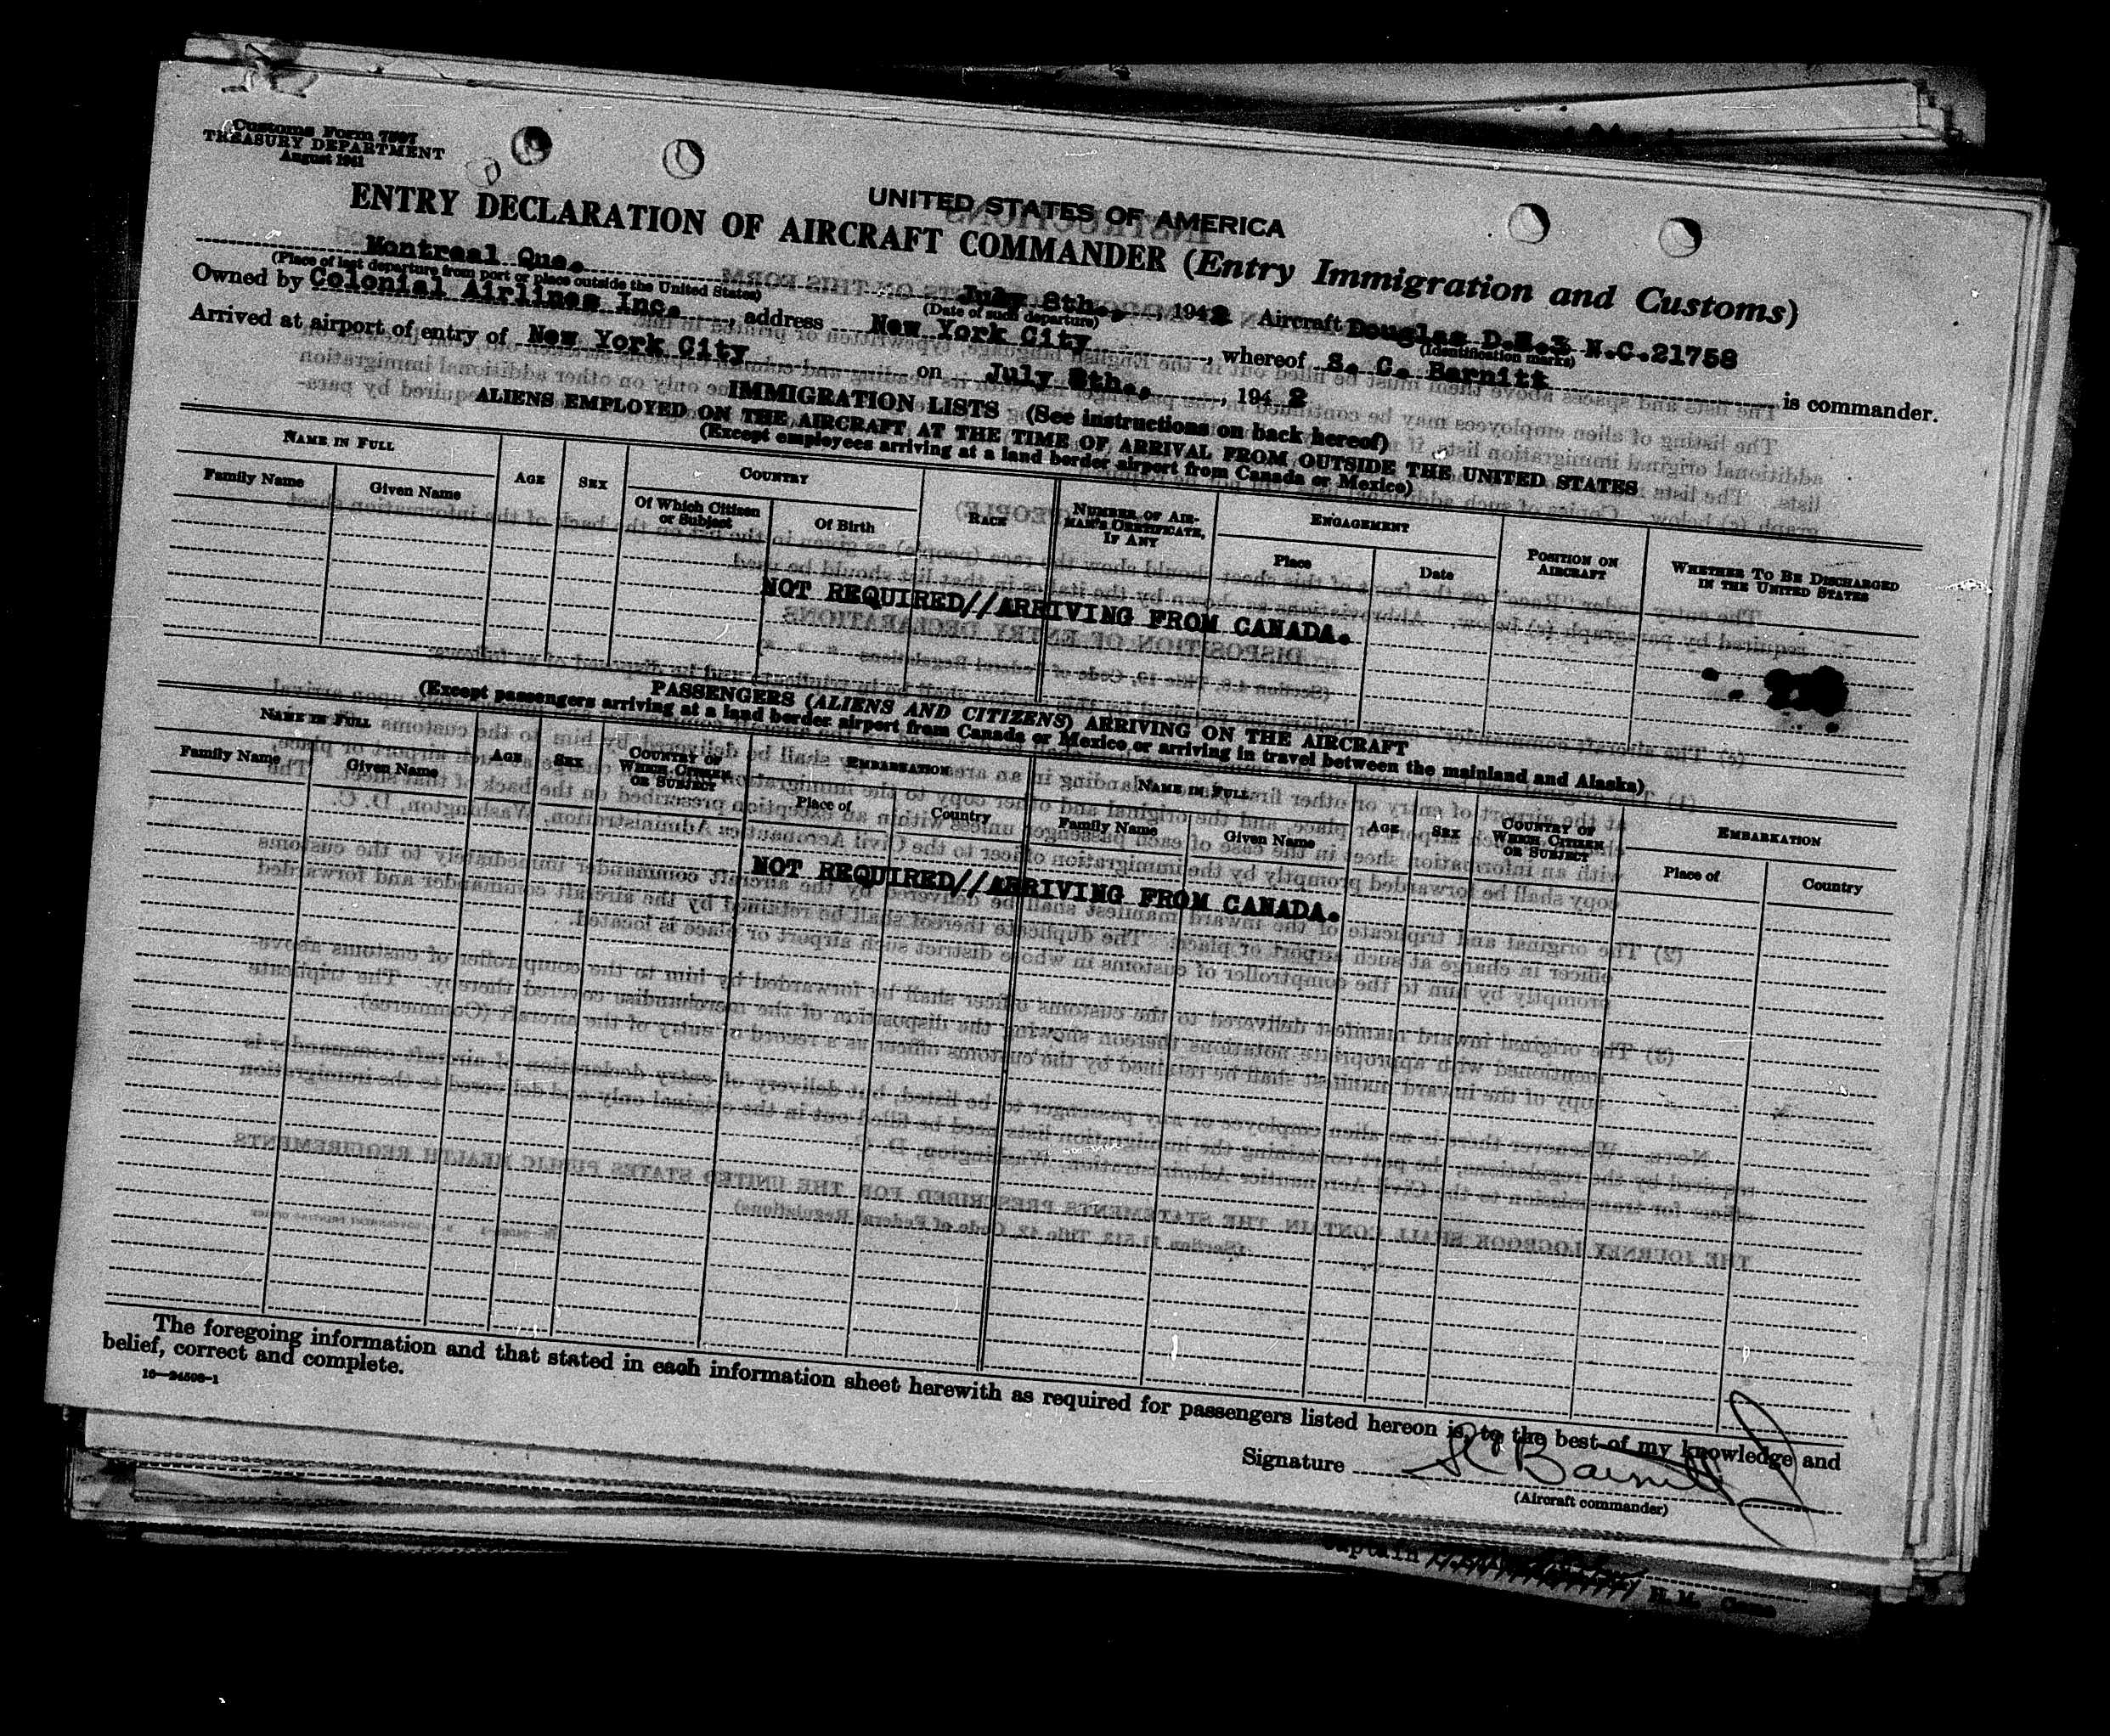 Customs Form 7507
TREASURY DEPARTMENT
August 1941
UNITED STATES OF AMERICA
ENTRY DECLARATION OF AIRCRAFT COMMANDER (Entry Immigration and Customs)
Montreal Que. July 8th., 1942 Aircraft Douglas D.S.3 N.C.21758
(Place of last departure from port or place outside the United States) (Date of such departure) (Identification marks)
Owned by Colonial Airlines Inc., address New York City, whereof S. C. Barnitt is commander.
Arrived at airport of entry of New York City on July 8th., 1942
IMMIGRATION LISTS (See instructions on back hereof)
ALIENS EMPLOYED ON THE AIRCRAFT AT THE TIME OF ARRIVAL FROM OUTSIDE THE UNITED STATES
(Except employees arriving at a land border airport from Canada or Mexico)
NAME IN FULL AGE SEX COUNTRY RACE NUMBER OF AIRMAN'S CERTIFICATE, IF ANY ENGAGEMENT POSITION ON AIRCRAFT WHETHER TO BE DISCHARGED IN THE UNITED STATES
Family Name Given Name Of Which Citizen or Subject Of Birth Place Date
NOT REQUIRED//ARRIVING FROM CANADA.
PASSENGERS (ALIENS AND CITIZENS) ARRIVING ON THE AIRCRAFT
(Except passengers arriving at a land border airport from Canada or Mexico or arriving in travel between the mainland and Alaska)
NAME IN FULL AGE SEX COUNTRY OF WHICH CITIZEN OR SUBJECT EMBARKATION NAME IN FULL AGE SEX COUNTRY OF WHICH CITIZEN OR SUBJECT EMBARKATION
Family Name Given Name Place of Country Family Name Given Name Place of Country
NOT REQUIRED//ARRIVING FROM CANADA.
The foregoing information and that stated in each information sheet herewith as required for passengers listed hereon is, to the best of my knowledge and
belief, correct and complete.
16—24508-1
Signature S C Barnitt
(Aircraft commander)
Captain